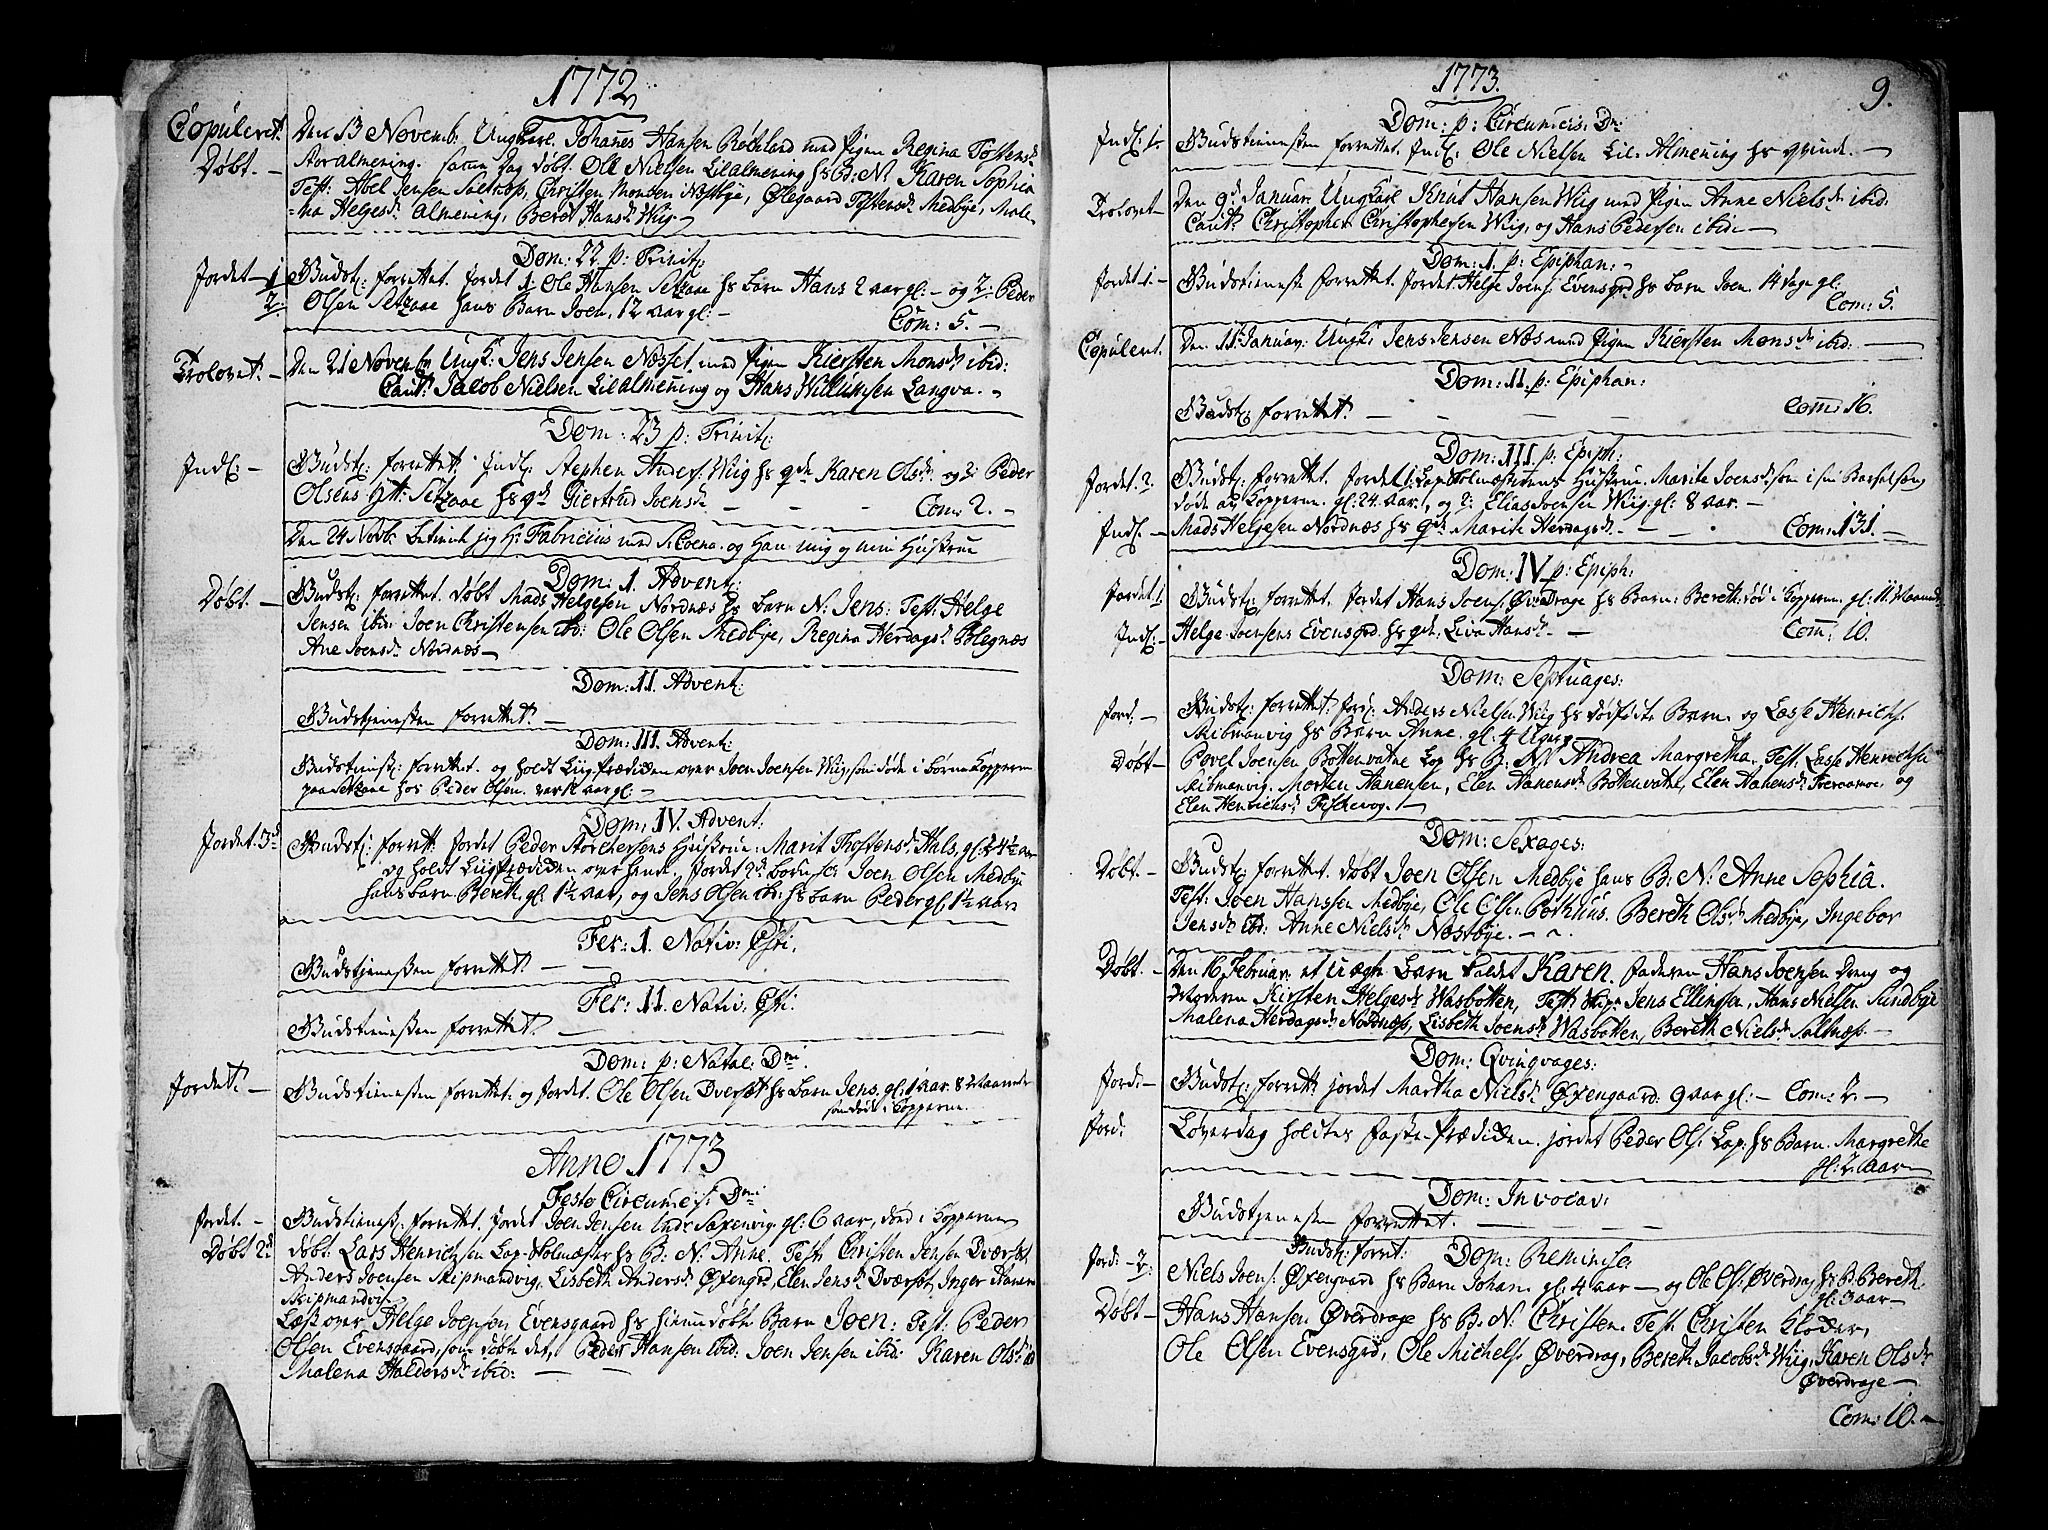 1772
Copuleret. Den 13 Novemb. Ungkarl. Johannes Hansen Røchland med Pigen Regina Tostens.dr
Døbt. - Storalmening. samme Dag døbt. Ole Nielsen Lilalmening hs bd: N. Karen Sophia
Test: Abel Jensen Saltrop, Christen Monsen Næstbye, Ølegaard Tostensdr Medbye, Male
=na Helgesdr Almening, Beret Hansdr Wiig -
Dom: 22 p: Trinit:
Jordet - 1 Gudst: forrettet. Jordet 1. Ole Hansen Setzaae hs barn Hans 2 aar gl: - og 2: Peder
2: Olsen Setzaae hans Barn Joen, 12 aar gl: -
Com: 5. -
Trolovet. - Den 21 Novembr. Ungk: Jens Jensen Næsset med Pigen Kiersten Monsdr ibid:
Caut: Jacob Nielsen Lilalmening og Hans Willumsen Langva. -
Dom: 23 p: Trinit:
Indl: - Gudst: forrettet. Indl: Stephen Anders: Wiig hs qde Karen Olsdr. og 2: Peder
Olsens Hst: Setzaae hs qde Giertrud Joensdr - - - Com: 2. -
Den 24 Novbr. betiente jeg Hr Fabricius med S: Coena. og Han mig og min Hustrue
Dom: 1. Advent:
Døbt. - Gudst: forrettet. døbt Mads Helgesen Nordnæs hs barn N: Jens: Test: Helge
Jensen ibid: Joen Christensen ibd: Ole Olsen Medbye, Regina Herdagsdr Bolegnæs
Ane Joensdr Nordnæs -
Dom: II. Advent:
Gudstjenesten forrettet. -
Dom: III. Advent:
Gudstienest: forrettet. og holdt Liig-Prædiken over Joen Joensen Wiig, som døde i Børne Kopperne
paa Setzaae hos Peder Olsen. aar gl: -
Dom: IV. Advent:
Jordet: 3de Gudst: forrett: Jordet Peder Storchersens Hustrue: Marit Thostensdr Hals, gl: 24½ aar
og holdt Liigprædiken over hende. Jordet 2de børn: Joen Olsen Medbye
hans barn Bereth. gl: 1½ aar, og Jens Olsen ibd: hs barn Peder gl: 1½ aar
Fer: 1. Nativ: Xsti:
Gudstjenesten forrettet. -
Fer: II. Nativ: Xsti:
Gudstienesten forrettet. -
Dom: p: Natal: Dni.
Jordet. - Gudstienesten forrettet. og jordet Ole Olsen Dversæt hs Barn Jens, gl: 1 aar 8 Maaneder
som døde i Kopperne.
Anno 1773
Festo Circumcis: Dni
Jordet. - Gudstienest: forrettet. Jordet Joen Jensen Saxenvig gl: 6 aar, død i Kopperne
Døbt 2de døbt: Lars Henrichsen Lap-Holmester hs B: N: Anne. Test: Christen Jensen Dværset
Anders Joensen Skipmandvig, Lisbeth Andersdr Øxengrd, Elen Jensdr Dværset, Inger
Skipmandvig
Læst over Helge Joensen Evensgaard hs hiemmedøbt Barn Joen: Test: Peder
Olsen Evensgaard, som døbte det, Peder Hansen ibid: Joen Jensen ibid: Karen Olsdr
Malena Haldersdr ibid: -
1773.
9.
Dom: p: Circumcis: Dni
Indl: 1. Gudstienesten forrettet. Indl: Ole Nielsen Lil-Almening hs qvinde. -
Trolovet - Den 9de Januar. Ungkarl Knut Hansen Wiig med Pigen Anne Nielsdr ibid:
Caut: Christopher Christophersen Wiig, og Hans Pedersen ibid -
Dom: 1. p: Epiphan: -
Jordet 1. - Gudstienest forrettet. Jordet Helge Joens: Evensgrd hs barn Joen. 14 Dage gl:
Com: 5.
Copuleret. Den 11te Januar: Ungk: Jens Jensen Næs med Pigen Kiersten Monsdr ibid: -
Dom: II. p: Epiphan:
Gudst: forrettet. - - - - Com: 16.
Dom: III p: Epiph:
Jordet. 2. Gudst: forrettet. Jordet 1: Lap-Holmesterens Hustrue. Marite Joensdr som i sin Barselseng
døde af Kopperne. gl: 24 aar., og 2: Elias Joensen Wiig. gl: 8 aar. -
Indl: - Mads Helgesen Nordnæs hs qde. Marith Herdagsdr. - - Com: 131. -
Dom: IV p: Epiph:
Jordet 1. Gudst: forrettet. Jordet Hans Joens: Øverdrage hs Barn: Bereth: død i Kopperne. gl: 11 Maaned
Indl: - Helge Joensens Evensgrd. hs qde: Liva Hansdr. - Com: 10.
Dom: Septuages:
Jord. - Gudst: forrettet: jord: Anders Nielsen Wiig hs dødfødte Barn. og Lasse Henrichs:
Skibmanvig hs Barn Anne. gl: 4 Uger.
Døbt - Povel Joensen Bottenvatne Lap hs B: N: Andrea Margretha. Test. Lasse Henrichsen
Skibmanvig. Morten Aanensen, Elen Aanensdr Bottenvatne, Elen Aanensdr Tveraamoe, og
Elen Henricsdr Fiskevog. -
Dom: Sexages:
Døbt. - Gudst: forrettet. døbt Joen Olsen Medbye hans B: N: Anne Sophia.
Test: Joen Hanssen Medbye, Ole Olsen Pothus. Bereth Olsdr Medbye, Ingebor
Jensdr ibd: Anne Nielsdr Næstbye. - -
Døbt. - Den 16 Februar. et uægte Barn kaldet Karen. Faderen Hans Joensen Dreng og
Moderen Kirsten Helgesdr Wasbotten, Test: Jens Ellingsen, Hans Nielsen Sundbye
Malena Herdagsdr Nordnæss, Lisbeth Joensdr Wasbotten, Bereth Nielsdr Saltnæss. -
Dom: Qvinqvages:
Jord: - Gudst: forrett: jordet Martha Nielsdr Øxengaard: 9 aar gl: - Com: 2. -
Jord: Løverdag holdtes Faste-Prædiken. jordet Peder Ols: Lap: hs Barn. Margrethe
gl: 2 aar -
Dom: Invocav:
Gudstjenesten forrettet. -
Gudst: forret: Dom: Reminisc:
Jord: - 2. Niels Joens: Øxengaard hs Barn Johan. gl: 4 aar - og Ole Ols: Øverdrag hs B: Bereth.
gl: 3 aar -
Døbt - Hans Hansen Øverdrage hs B: N: Christen. Test: Christen Kloder,
Ole Olsen Evensgrd, Ole Michels: Øverdrag, Bereth Jacobsdr Wiig, Karen Olsdr
Øverdrage -
Com: 10. -